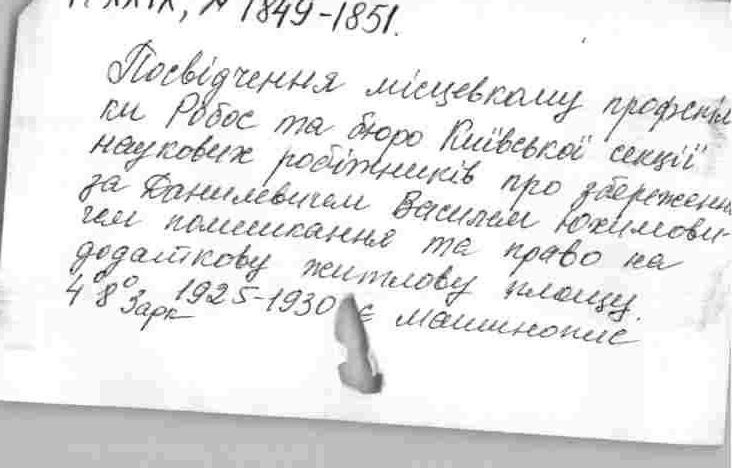 № 1849-1851.
Посвідчення місцевкому профспіл
ки Робос та бюро Київської секції
наукових робітників про збереженн
за Данилевичем Василем Юхимови-
чем помешкання та право на
додаткову житлову площу.
4° 8° 1925-1930 є машинопис
3 арк